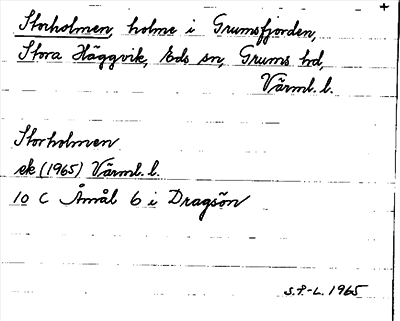 Storholmen, holme i Grumsfjorden,
Stora Häggvik, Eds sn, Grums hd,
Värml. l.
Storholmen
ek (1965) Värml. l.
10 C Åmål 6 i Dragsön
S.F.-L. 1965